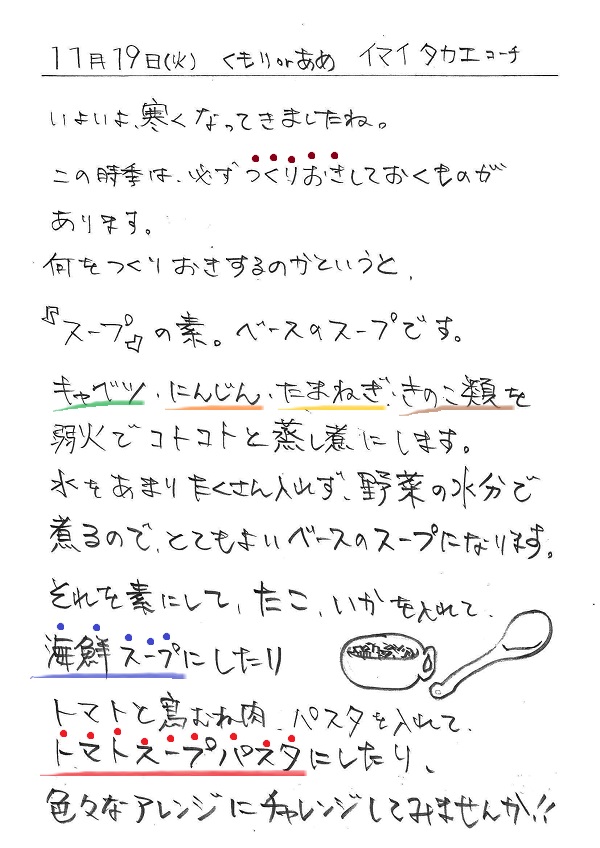 11月19日(火) くもりorあめ イマイタカエコーチ
いよいよ、寒くなってきましたね。
この時季は、必ずつくりおきしておくものが
あります。
何をつくりおきするのかというと、
『スープ』の素。ベースのスープです。
キャベツ・にんじん・たまねぎ・きのこ類を
弱火でコトコトと蒸し煮にします。
水をあまりたくさん入れず、野菜の水分で
煮るので、とてもよいベースのスープになります。
それを素にして、たこ、いかを入れて、
海鮮スープにしたり
トマトと鶏むね肉、パスタを入れて、
トマトスープパスタにしたり、
色々なアレンジにチャレンジしてみませんか!!